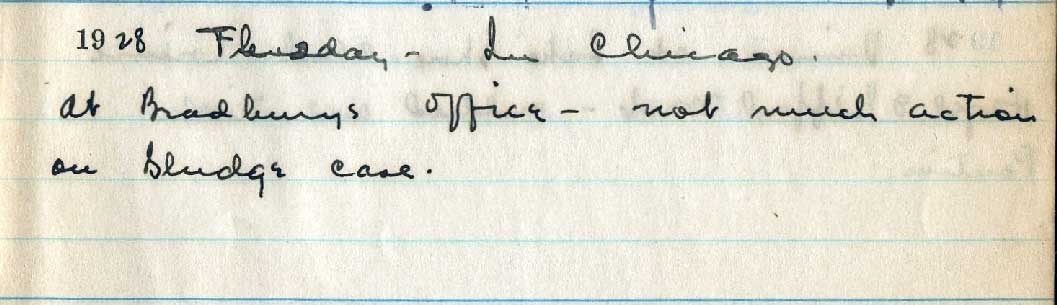 1928 Thursday - In Chicago.
at Bradburys office - not much action
on Sludge case.